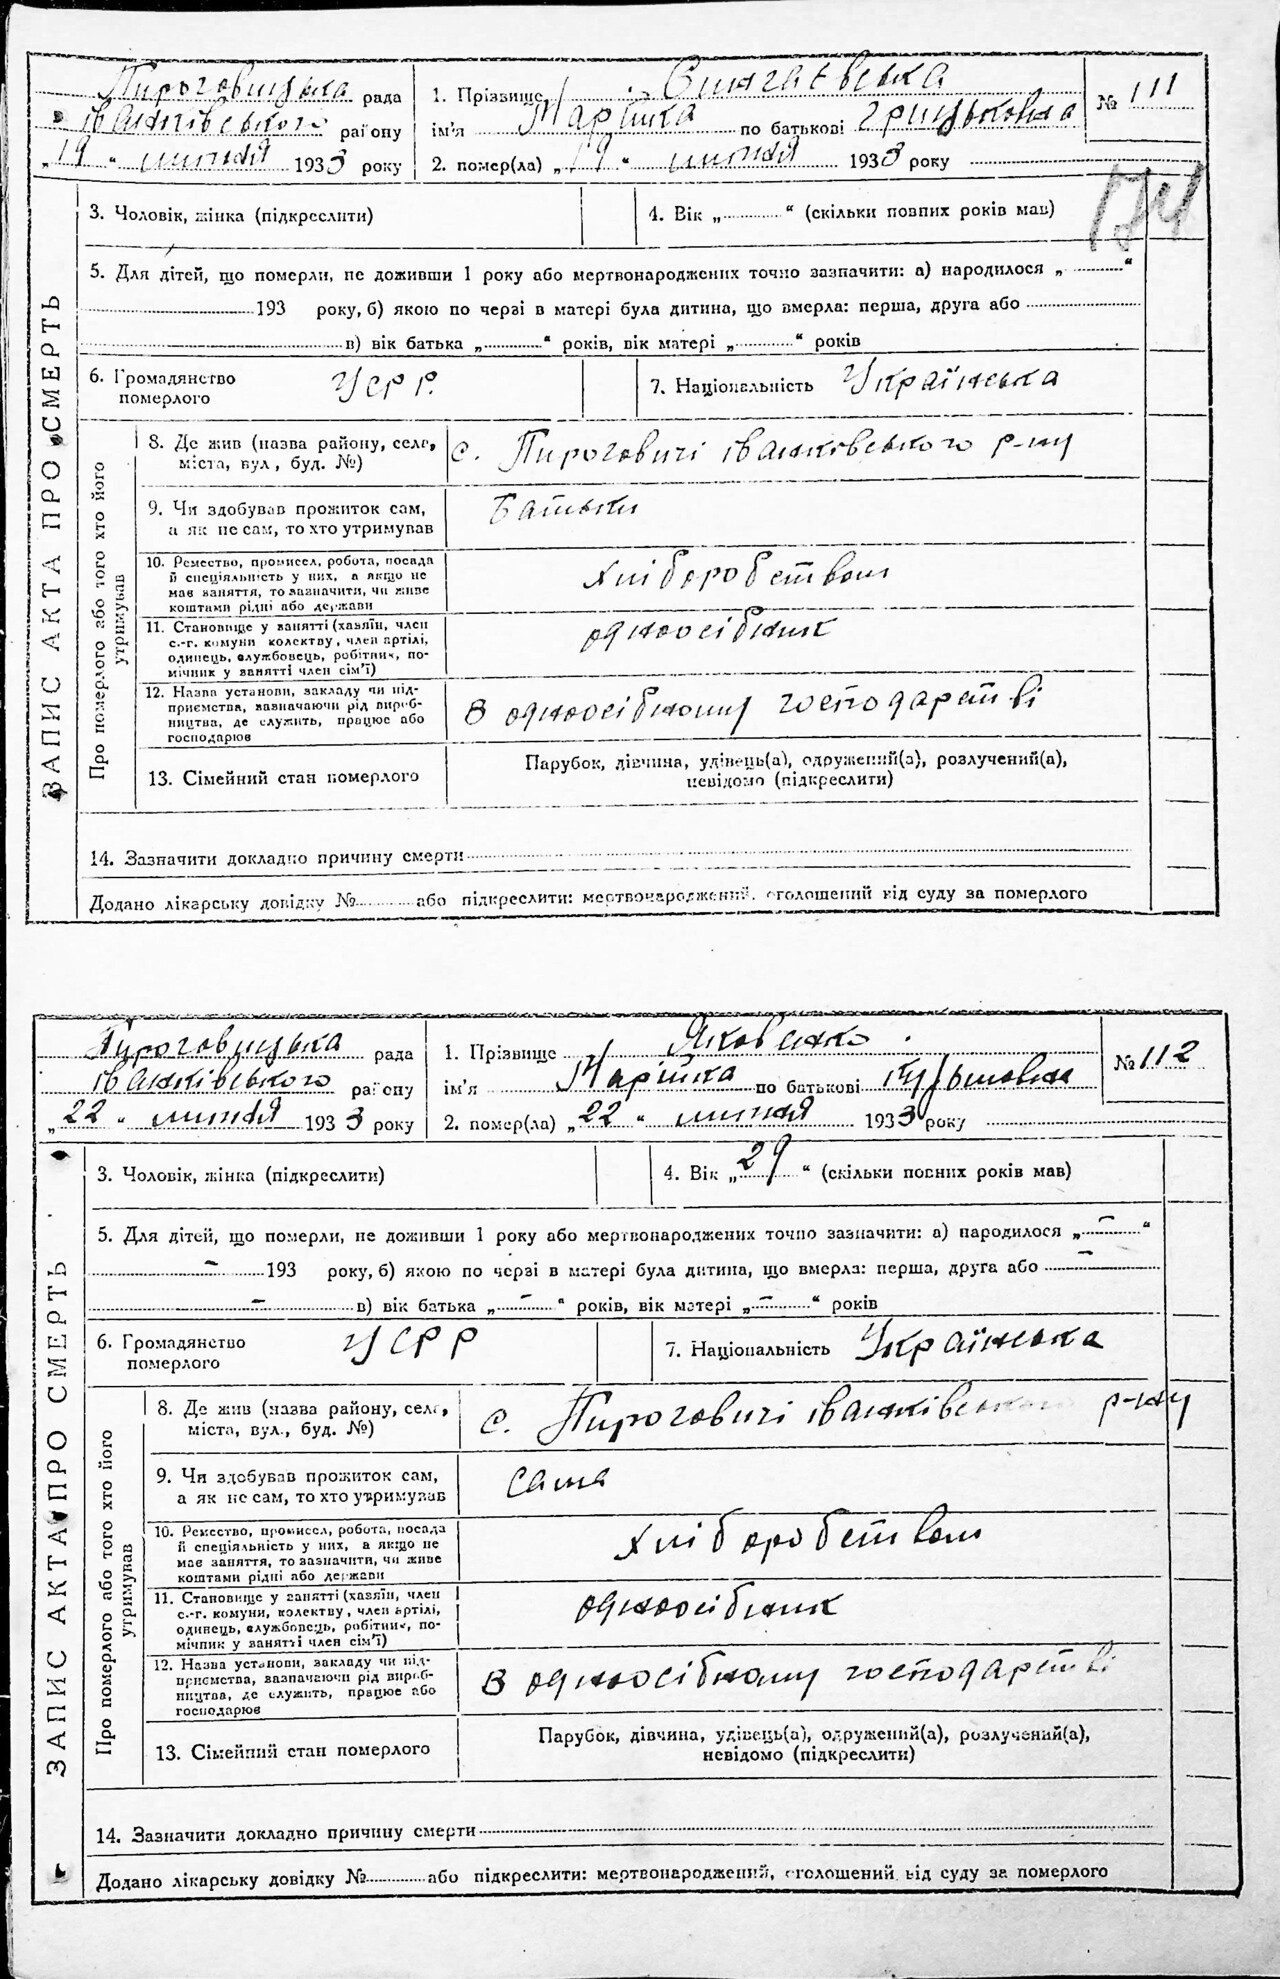 ЗАПИС АКТА ПРО СМЕРТЬ
Пироговицька рада
іванківського району
„19“ липня 1933 року
1. Прізвище Сингаєвська
ім'я Марійка по батькові Грицьковна
2. помер(ла) „19“ липня 1933 року
№ 111
174
3. Чоловік, жінка (підкреслити)
4. Вік „ “ (скільки повних років мав)
5. Для дітей, що померли, не доживши 1 року або мертвонароджених точно зазначити: а) народилося „ “
193 року, б) якою по черзі в матері була дитина, що вмерла: перша, друга або
в) вік батька „ “ років, вік матері „ “ років
6. Громадянство
померлого
УСРР.
7. Національність Українська
Про померлого або того хто його
утримував
8. Де жив (назва району, село,
міста, вул, буд. №)
с. Пироговичі іванківського р-ну
9. Чи здобував прожиток сам,
а як не сам, то хто утримував
Батьки
10. Ремество, промисел, робота, посада
й спеціяльність у них, а якщо не
має заняття, то зазначити, чи живе
коштами рідні або держави
хліборобством
11. Становище у занятті (хазяїн, член
с.-г. комуни колектву, член артілі,
одинець, службовець, робітник, по-
мічник у занятті член сім'ї)
одноосібник
12. Назва установи, закладу чи під-
приємства, зазначаючи рід вироб-
ництва, де служить, працює або
господарює
в одноосібному господарстві
13. Сімейний стан померлого
Парубок, дівчина, удівець(а), одружений(а), розлучений(а),
невідомо (підкреслити)
14. Зазначити докладно причину смерти
Додано лікарську довідку № або підкреслити: мертвонароджений, оголошений від суду за померлого
ЗАПИС АКТА ПРО СМЕРТЬ
Пироговицька рада
іванківського району
„22“ липня 1933 року
1. Прізвище Яковенко
ім'я Марійка по батькові
2. помер(ла) „22“ липня 1933 року
№ 112
3. Чоловік, жінка (підкреслити)
4. Вік „29“ (скільки повних років мав)
5. Для дітей, що померли, не доживши 1 року або мертвонароджених точно зазначити: а) народилося „–“
– 193 року, б) якою по черзі в матері була дитина, що вмерла: перша, друга або –
– в) вік батька „–“ років, вік матері „–“ років
6. Громадянство
померлого
УСРР
7. Національність Українська
Про померлого або того хто його
утримував
8. Де жив (назва району, село,
міста, вул., буд. №)
с. Пироговичі іванківського р-ну
9. Чи здобував прожиток сам,
а як не сам, то хто утримував
сама
10. Ремество, промисел, робота, посада
й спеціяльність у них, а якщо не
має заняття, то зазначити, чи живе
коштами рідні або держави
хліборобством
11. Становище у занятті (хазяїн, член
с.-г. комуни, колектву, член артілі,
одинець, службовець, робітник, по-
мічник у занятті член сім'ї)
одноосібник
12. Назва установи, закладу чи під-
приємства, зазначаючи рід вироб-
ництва, де служить, працює або
господарює
в одноосібному господарстві
13. Сімейний стан померлого
Парубок, дівчина, удівець(а), одружений(а), розлучений(а),
невідомо (підкреслити)
14. Зазначити докладно причину смерти
Додано лікарську довідку № або підкреслити: мертвонароджений, оголошений від суду за померлого